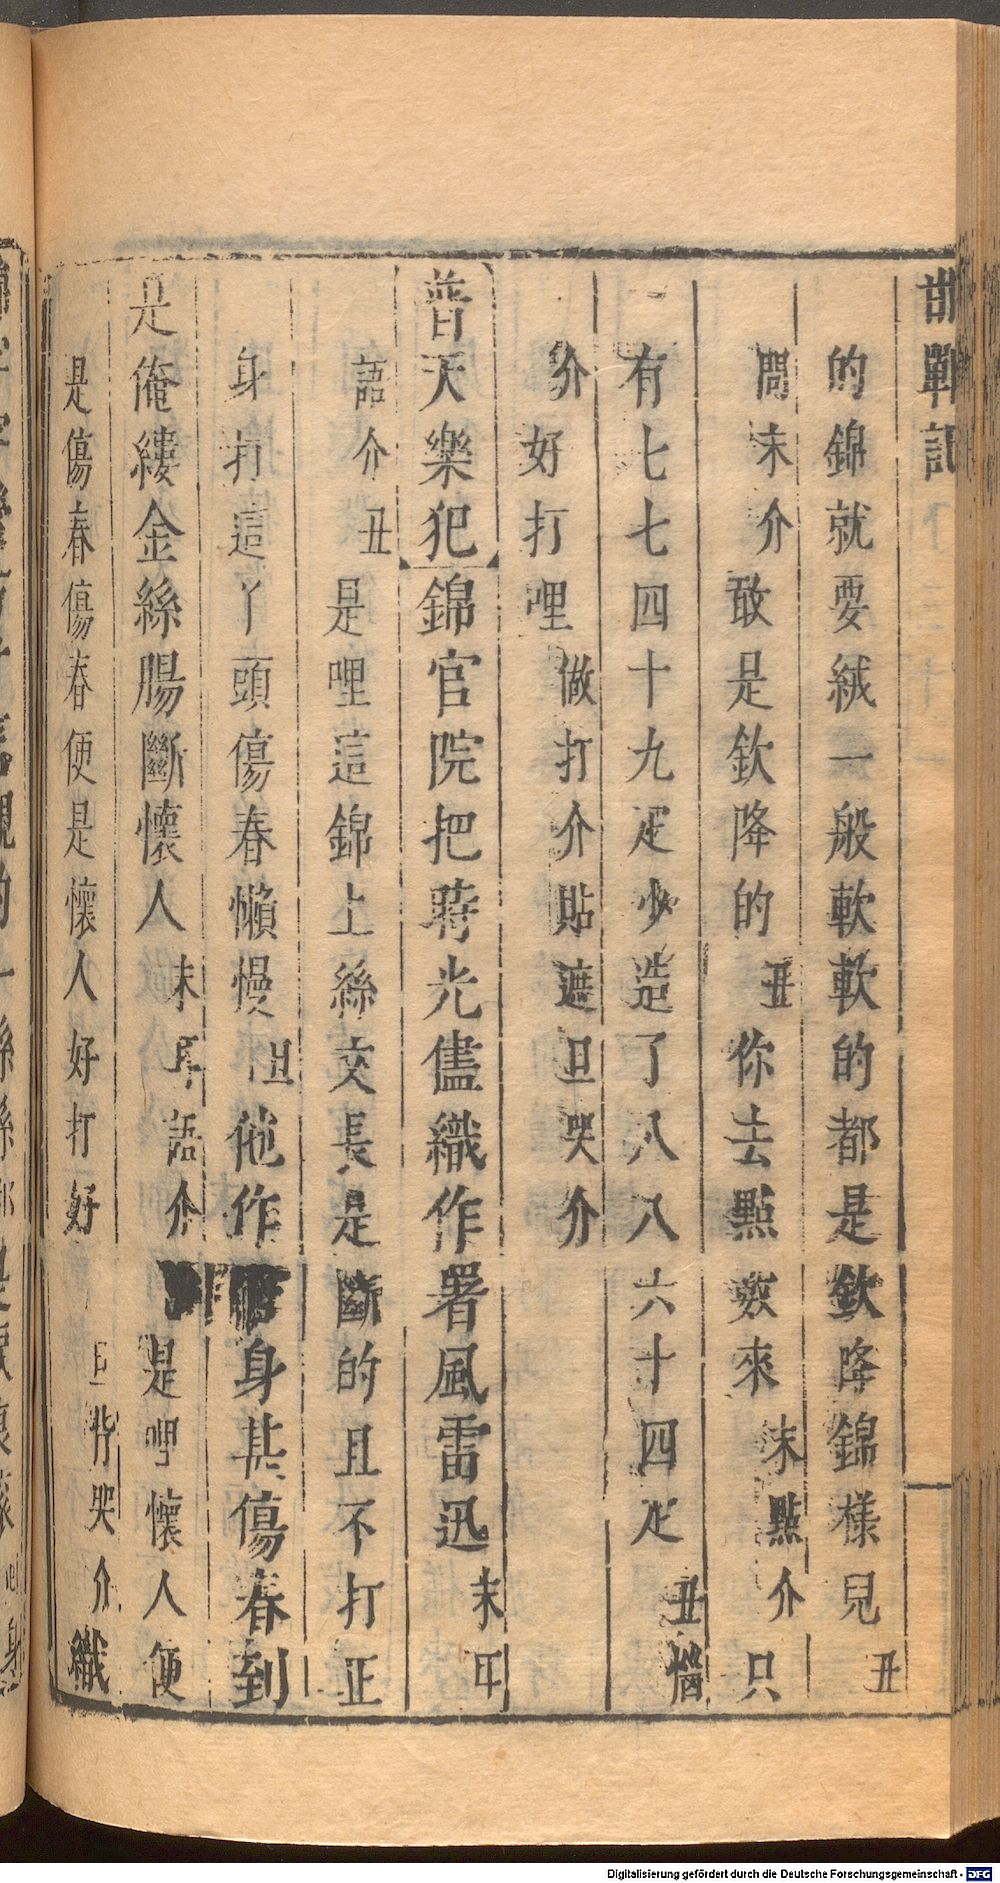 邯鄲記
的錦就要絨一般軟軟的都是欽降錦樣兒丑
問末介敢是欽降的丑你去點數來末點介只
有七七四十九疋少造了八八六十四疋丑惱
介好打哩做打介貼遮旦哭介
普天樂犯錦官院把時光儘織作署風雷迅末耳
語介丑是哩這錦上絲文長是斷的且不打正
身打這丫頭傷春懶慢旦他作身甚傷春到
是俺縷金絲腸斷懷人末耳語介是哩懷人便
是傷春傷春便是懷人好打好旦背哭介織
Digitalisierung gefördert durch die Deutsche Forschungsgemeinschaft - DFG